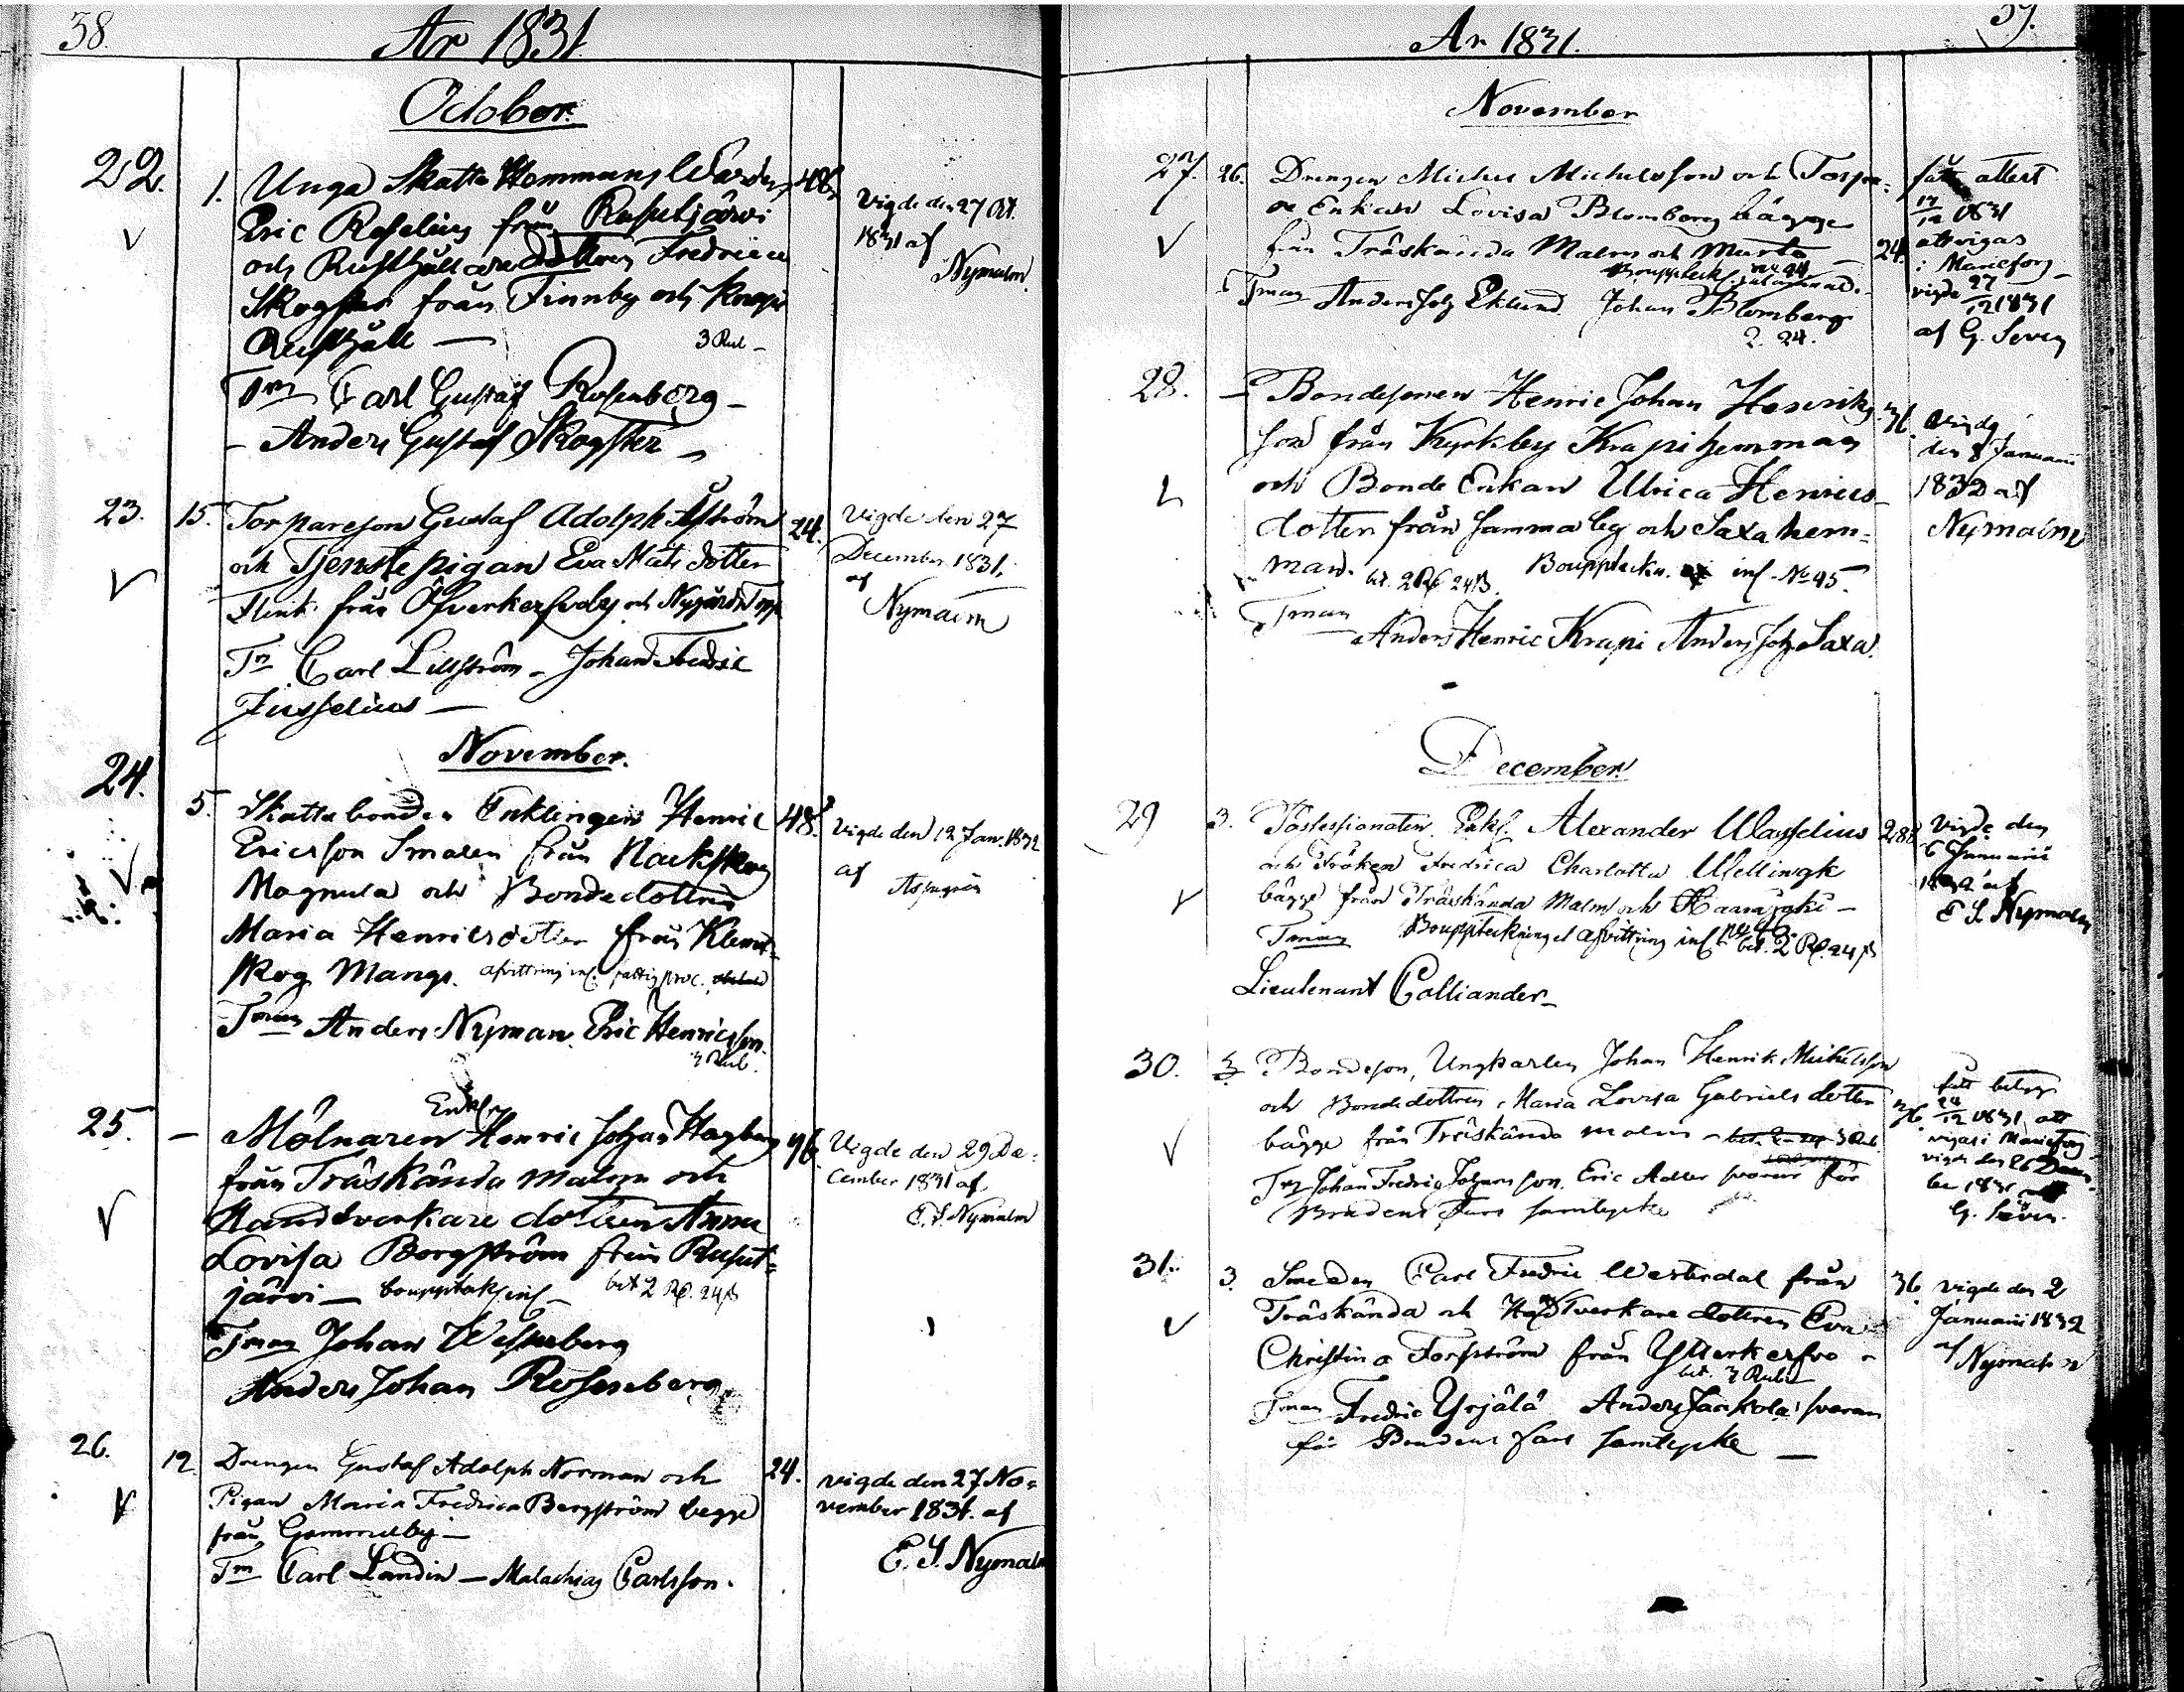 38.
År 1831.
October.
22.
1. Unga Skatte Hemmans Värden 48.
Eric Roselius från Rusutjärvi
och Rusthållaredottren Fredrica
Skogster från Finnby och Krapi
Rusthåll —
3 Rub —
Tmn Carl Gustaf Rosenberg —
— Anders Gustaf Skogster —
Vigde den 27 Oct.
1831 af
Nymalm
23. 15. Torpareson Gustaf Adolph Åström 24.
och Tjenstepigan Eva Mats dotter
Flink från Öfverkerfvoby och Nygårds Torp
Tn Carl Lillström — Johan Fredric
Jusselius —
Vigde den 27
December 1831.
af
Nymalm
November.
24.
5. Skattebonden Enklingen Henric 48.
Ericsson Smalen från Nackskog
Magnula och Bondedottren
Maria Henricsdotter från Klemet-
skog Mangs. afvittring inf. fattig proc.
Tman Anders Nyman. Eric Henricsson.
3 Rub.
Vigde den 12 Jan. 1832
af
Aspegrén
25.
Enkl.
— Mölnaren Henric Johan Hagberg 96.
från Träskända malm och
Handtverkare dottren Anna
Lovisa Borgström från Rusut-
järvi — bouppteks inf — bet 2 Rß. 24 ß
Tman Johan Wesseberg
Anders Johan Roseneberg
Vigde den 29 De-
cember 1831 af
E. S. Nymalm
26.
12. Drengen Gustaf Adolph Norrman och 24.
Pigan Maria Fredrica Bergström begge
från Gammelby —
Tm Carl Landin — Malachias Carlsson.
vigde den 27 No-
vember 1831. af
E. S. Nymalm
39.
År 1831.
November
27. 26. Drengen Michel Michelsson och Torpa-
re Enkan Lovisa Blomberg bägge
från Träskända Malm och Marta — 24.
Bouppteck.
Tman Anders Joh Eklund Johan Blomberg
2. 24.
fått attest
17/12 1831
att vigas
i Mariefors —
vigde 27/12 1831
af G. Seven
28. — Bondesonen Henric Johan Henriks- 36.
son från Kyrkby Krapi hemman
och Bonde Enkan Ulrica Henrics-
dotter från samma by och Saxa hem-
man. bet. 2 Rß 24 ß. Bouppteckn. inf. No 45.
Tman
Anders Henric Krapi Anders Joh Saxa.
Vigde
den 8 Januari
1832 af
Nymalm
December
29 3. Possessionaten Enkl. Alexander Wasselius 288
och Fröken Fredrica Charlotta Wellingk
bägge från Träskända Malm och Haarajoki —
Tman Bouppteckning et afvittring inf bet. 2 Rß. 24 ß
Lieutenant Colliander —
Vigde den
6 Januarii
1832 af
E S. Nymalm
30. 3 Bondeson, Ungkarlen Johan Henrik Mickelsson
och Bondedottren, Maria Lovisa Gabriels dotter 36.
bägge från Träskända malm — 3 Rub.
Tn Johan Fredric Johansson, Eric Adler svarar för
Brudens Fars samtycke
fått betyg
24/12 1831 att
vigas i Mariefors
vigde den 26 Decem-
ber 1831 af
G. Seven.
31. 3. Smeden Carl Fredric Westerdal från 36
Träskända och Handtverkare dottren Eva
Christina Forsström från Ytterkerfvo —
bet. 3 Rub
Tman Fredric Yrjälä Anders Jaskola svarar
för Brudens Fars samtycke —
vigde den 2
Januarii 1832
af
Nymalm